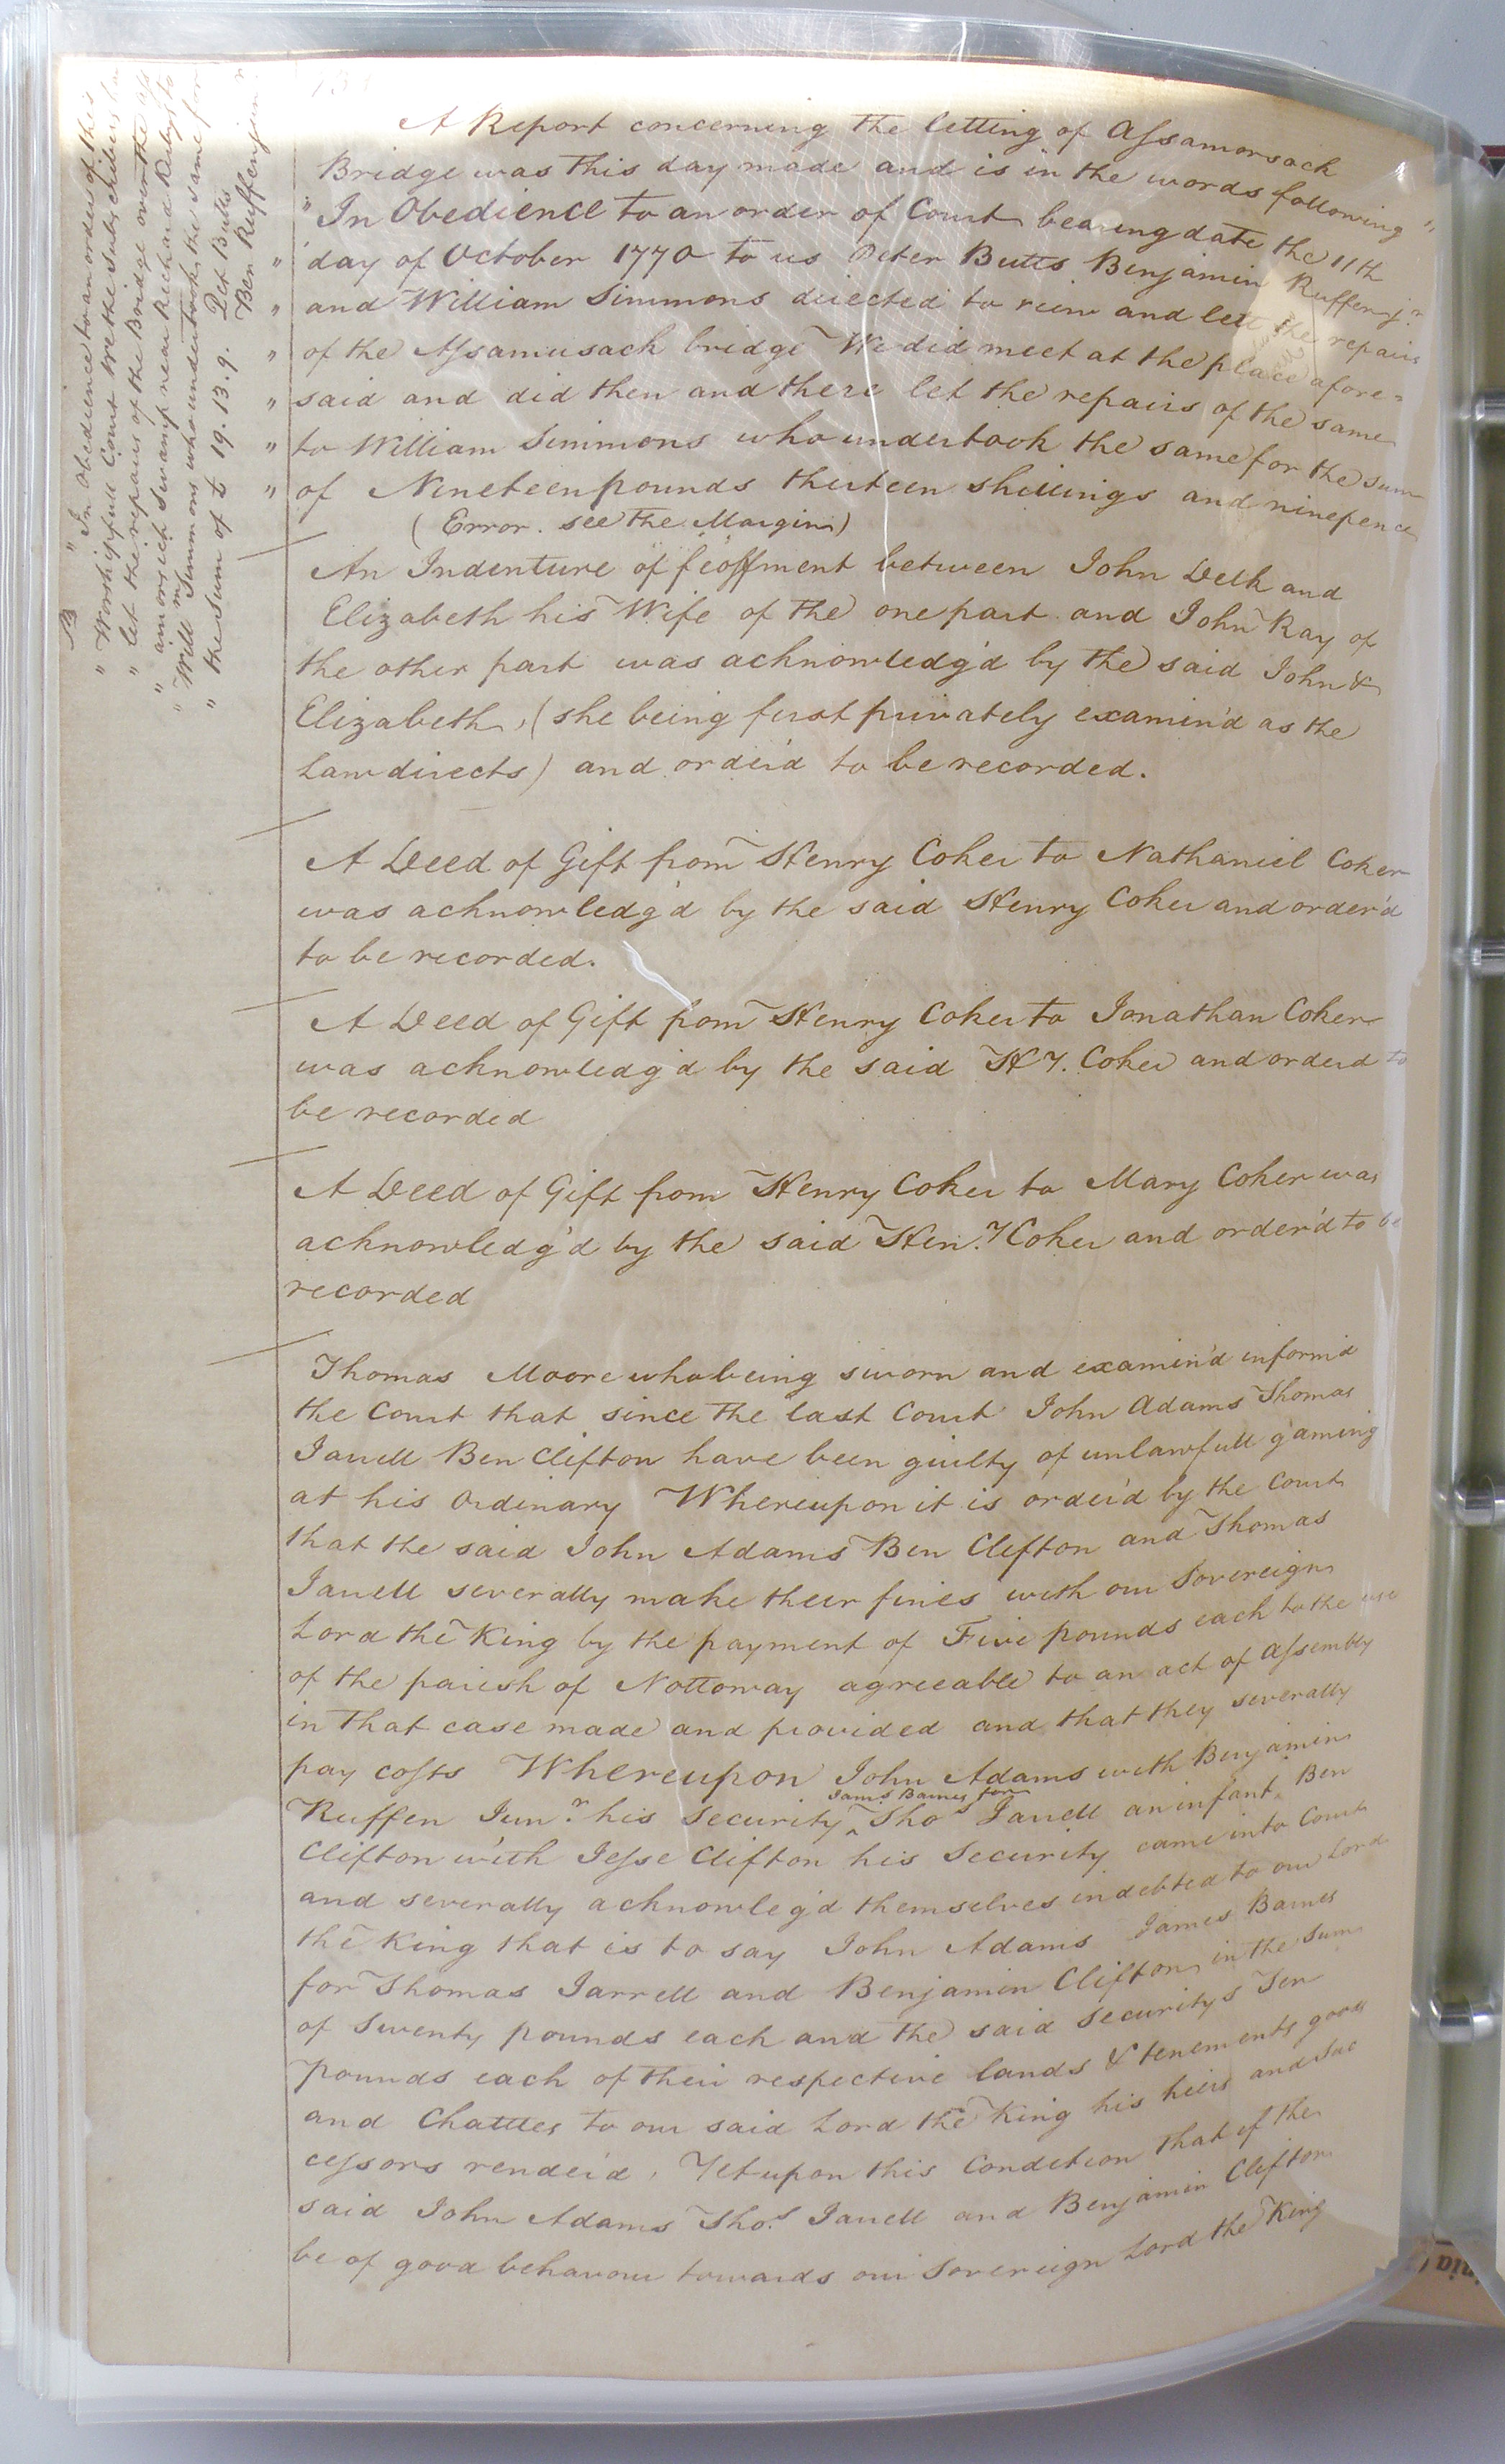 A Report concerning the letting of Assamorsack
Bridge was this day made and is in the words following
" In Obedience to an order of Court bearing date the 11th "
" day of October 1770 to us Peter Butts Benjamin Ruffen jr.
" and William Simmons directed to view and lett the repairs
" of the Assamusack bridge We did meet at the place afore=
" said and did then and there let the repairs of the same
" to William Simmons who undertook the same for the sum
" of Nineteen pounds thirteen shillings and ninepence
( Error. see the Margin )
" In Obedience to an order of this
" Worshipfull Court We the Subscribers
" let the repairs of the Bridge over the
" amorsick Swamp near Richard Kirbys to
" Willm Simmons who undertook the same for
" the sum of £ 19.13.9. Pet Butts
Ben Ruffen jun r
An Indenture of feoffment between John Delk and
Elizabeth his Wife of the one part and John Ray of
the other part was acknowledg'd by the said John &
Elizabeth, (she being first privately examin'd as the
Law directs) and order'd to be recorded.
A Deed of Gift from Henry Coker to Nathaniel Coker
was acknowledg'd by the said Henry Coker and order'd
to be recorded.
A Deed of Gift from Henry Coker to Jonathan Coker
was acknowledg'd by the said Hy. Coker and orderd to
be recorded
A Deed of Gift from Henry Coker to Mary Coker was
acknowledg'd by the said Hen.y Coker and order'd to be
recorded
Thomas Moore who being sworn and examin'd inform'd
the Court that since the last Court John Adams Thomas
Jarrell Ben Clifton have been guilty of unlawfull gaming
at his Ordinary Whereupon it is order'd by the Court
that the said John Adams Ben Clifton and Thomas
Jarrell severally make their fines with our Sovereign
Lord the King by the payment of Five pounds each to the use
of the parish of Nottoway agreeable to an act of Assembly
in that case made and provided and that they severally
pay costs Whereupon John Adams with Benjamin
Ruffen Junr. his Security ^ James Barnes for Thos Jarrell an infant, Ben
Clifton with Jesse Clifton his Security came into Court
and severally acknowleg'd themselves indebted to our Lord
the King that is to say John Adams James Barnes
for Thomas Jarrell and Benjamin Clifton in the Sum
of Twenty pounds each and the said Securitys Ten
pounds each of their respective lands & tenements goods
and Chattles to our said Lord the King his heirs and Suc
cessors render'd, Yet upon this Condition that if the
said John Adams Thos. Jarrell and Benjamin Clifton
be of good behavour towards our Sovereign Lord the King